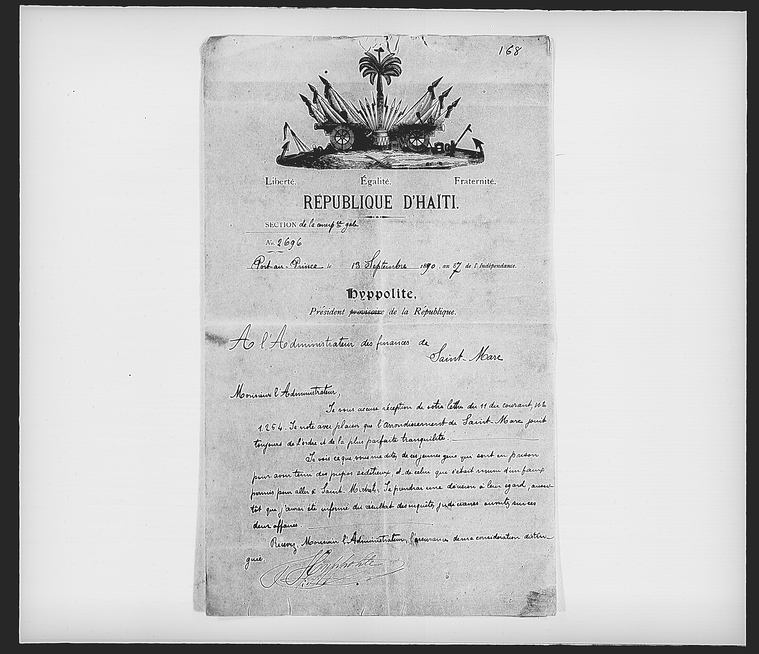 168
Liberté. Égalité. Fraternité.
RÉPUBLIQUE D'HAITI.
SECTION de la
No. 2696
Port-au-Prince le 13 Septembre 1890 an 87 de l'Indépendance.
Hyppolite,
Président provisoire de la République.
A l'Administrateur des finances de
Saint-Marc
Monsieur l'Administrateur,
Je vous accuse réception de votre lettre du 11 du courant, No
1254. Je note avec plaisir que l'arrondissement de Saint-Marc jouit
toujours de l'ordre et de la plus parfaite tranquilité.
Je vois ce que vous me dites de ces jeunes gens qui sont en prison
pour avoir tenu des propos séditieux et de celui qui s'était muni d'un faux
permis pour aller à Saint-Michel. Je prendrai une décision à leur égard, aussi-
tôt que j'aurai été informé du résultat des enquêtes judiciaires ouvertes sur ces
deux affaires.
Recevez, Monsieur l'Administrateur, l'assurance de ma considération distin-
guée.
Hyppolite